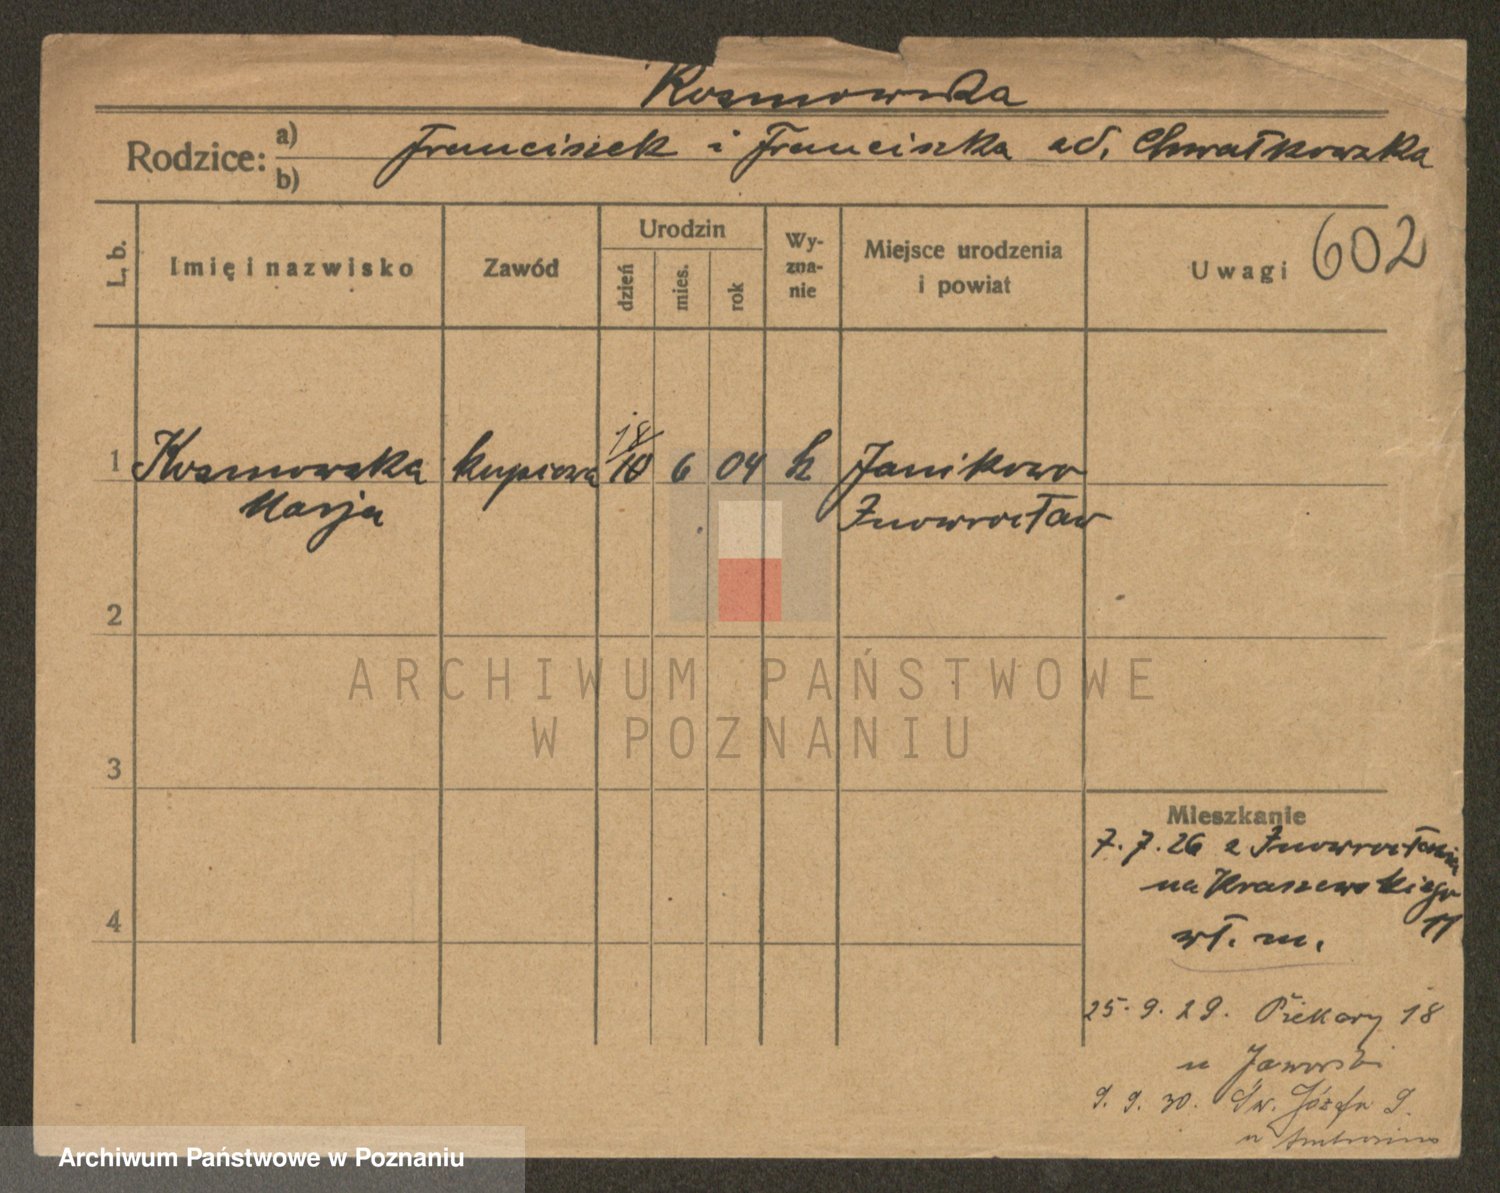 Kosmowska
Rodzice:
a) Franciszek i Franciszka
b)
L. b.
Imię i nazwisko
Zawód
Urodzin
dzień
mies.
rok
Wy-
zna-
nie
Miejsce urodzenia
i powiat
Uwagi
602
1 Kosmowska kupcowa 18 10 6 04 k Janikowo
Marja Inowrocław
2
3
4
Mieszkanie
7.7.26 z Inowrocławia
na Kraszewskiego
11
wł. m.
25.9.29. Piekary 18
u Jaworski
9.9.30. Św. Józefa 9.
u
ARCHIWUM PAŃSTWOWE
W POZNANIU
Archiwum Państwowe w Poznaniu